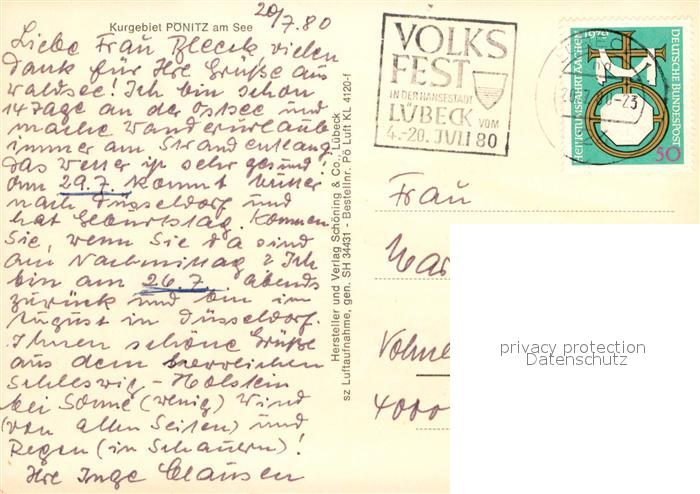 Kurgebiet PÖNITZ am See
20/7.80
Liebe Frau Bleeck vielen
Dank für Ihre Grüße aus
Waldsee! Ich bin schon
14 Tage an der Ostsee und
mache Wanderurlaub
immer am Strand entlang
das Wetter ist sehr gesund!
Am 29.7. kommt Mutter
nach Düsseldorf und
hat Geburtstag. Kommen
Sie, wenn Sie da sind
am Nachmittag? Ich
bin am 26.7. abends
zurück und bin im
August in Düsseldorf.
Ihnen schöne Grüße
aus dem herrlichen
Schleswig-Holstein
bei Sonne (wenig) Wind
(von allen Seiten) und
Regen (in Schauern)!
Ihre Inge Clausen
Hersteller und Verlag Schöning & Co., Lübeck
sz Luftaufnahme, gen. SH 34431 - Bestellnr. Pö Luft KL 4120-f
VOLKS
FEST
IN DER HANSESTADT
LÜBECK VOM
4.-20. JULI 80
HEILIGTUMSFAHRT AACHEN
DEUTSCHE BUNDESPOST
50
Frau
privacy protection
Datenschutz
4000